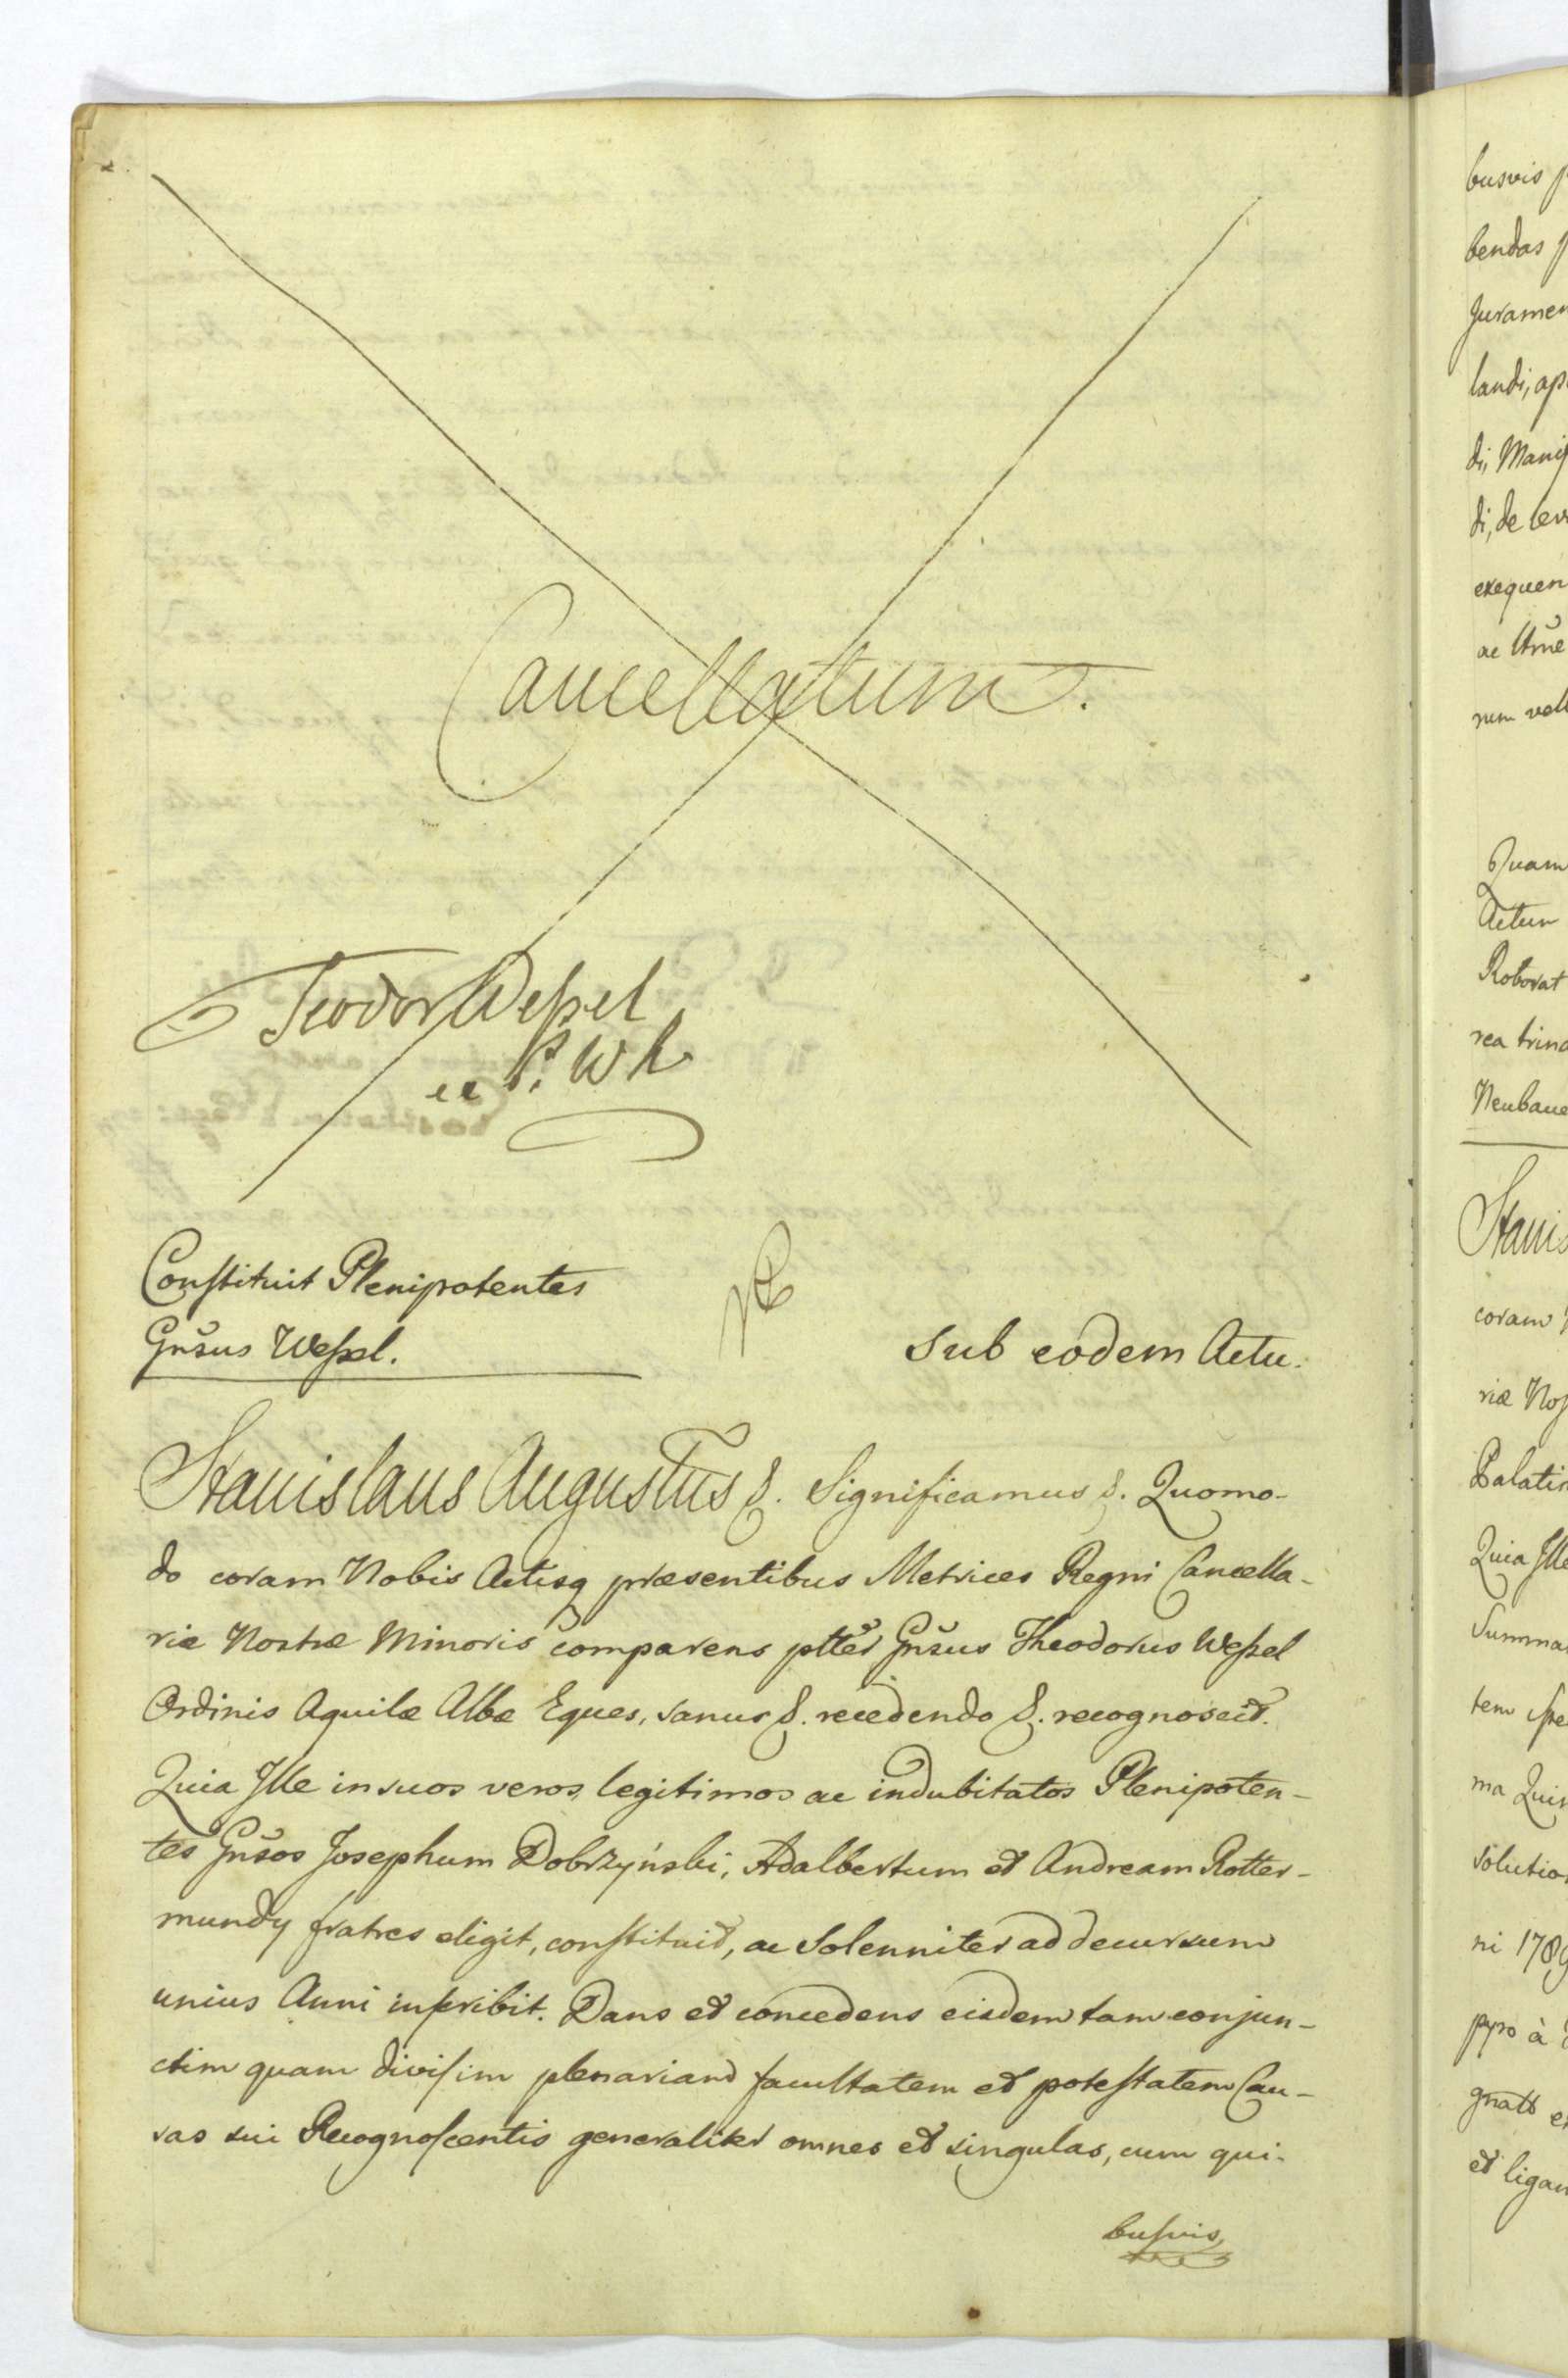 Cancellatum.
Teodor Weſsel
P. W K
Conſtituit Plenipotentes
Gnsus Weſsel.
Sub eodem Actu.
Stanislaus Augustus &. Significamus &. Quomo-
do coram Nobis Actisq præsentibus Metrices Regni Cancella-
riæ Nostræ Minoris comparens ptter Gnsus Theodorus Weſsel
Ordinis Aquilæ Albæ Eques, sanus &. recedendo &. recognoscit.
Quia Ille in suos veros, legitimos ac indubitatos Plenipoten-
tes Gnsos Josephum Dobrzyński, Adalbertum et Andream Rotter-
mundy fratres eligit, conſtituit, ac Solenniter ad decursum
unius Anni inſcribit. Dans et concedens eisdem tam conjun-
ctim quam diviſim plenariam facultatem et poteſtatem Cau-
sas sui Recognoſcentis generaliter omnes et singulas, cum qui-
buſvis,
busvis
bendas
Juramen
landi, ap
di, Manif
di, de
exequen
ac
nem vell
Quam
Actum
Roborat
rea trina
Neubaue
Stanis
coram
riæ Noſ
Palatin
Quia Ille
Summa
tem
ma Quin
solution
ni 1789
pyro à
gnatt
et ligan